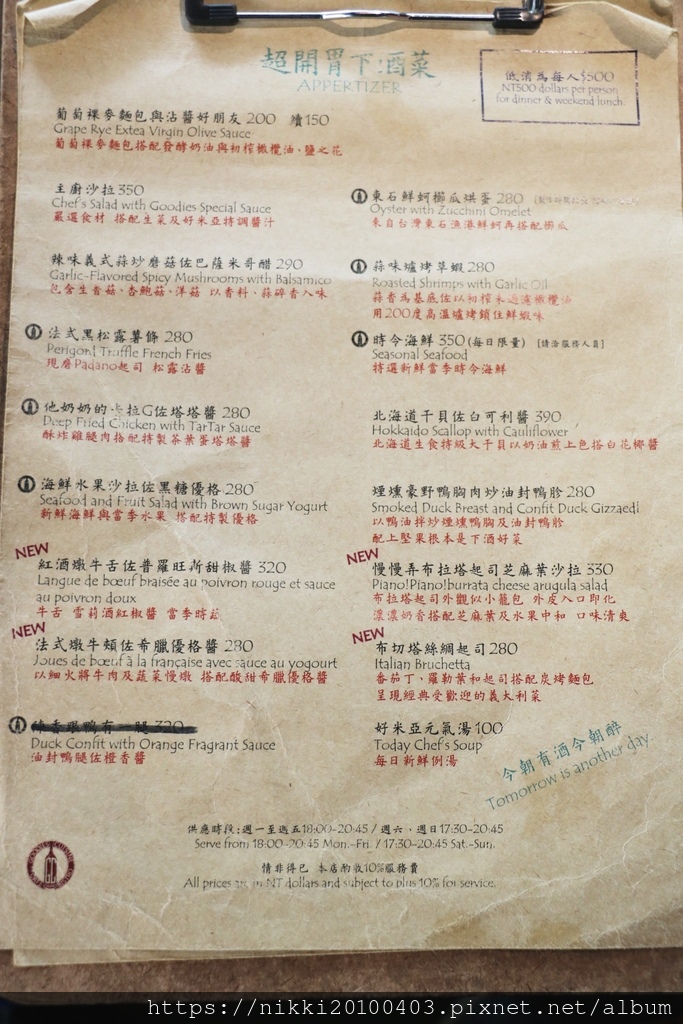 超開胃下酒菜
APPERTIZER
低消為每人$500
NT500 dollars per person
for dinner & weekend lunch.
葡萄裸麥麵包與沾醬好朋友 200 續150
Grape Rye Extea Virgin Olive Sauce
葡萄裸麥麵包搭配發酵奶油與初榨橄欖油、鹽之花
主廚沙拉 350
Chef's Salad with Goodies Special Sauce
嚴選食材 搭配生菜及好米亞特調醬汁
辣味義式蒜炒磨菇佐巴薩米哥醋 290
Garlic-Flavored Spicy Mushrooms with Balsamico
包含生香菇、杏鮑菇、洋菇 以香料、蒜碎香入味
法式黑松露薯條 280
Perigord Truffle French Fries
現磨Padano起司 松露沾醬
他奶奶的卡拉G佐塔塔醬 280
Deep Fried Chicken with TarTar Sauce
酥炸雞腿肉搭配特製茶葉蛋塔塔醬
海鮮水果沙拉佐黑糖優格 280
Seafood and Fruit Salad with Brown Sugar Yogurt
新鮮海鮮與當季水果 搭配特製優格
NEW
紅酒燉牛舌佐普羅旺斯甜椒醬 320
Langue de bœuf braisée au poivron rouge et sauce
au poivron doux
牛舌 雪莉酒紅椒醬 當季時蔬
NEW
法式燉牛頰佐希臘優格醬 280
Joues de bœuf à la française avec sauce au yogourt
以細火將牛肉及蔬菜慢燉 搭配酸甜希臘優格醬
鴨有一腿 320
Duck Confit with Orange Fragrant Sauce
油封鴨腿佐橙香醬
東石鮮蚵櫛瓜烘蛋 280
Oyster with Zucchini Omelet
來自台灣東石漁港鮮蚵再搭配櫛瓜
蒜味爐烤草蝦 280
Roasted Shrimps with Garlic Oil
蒜香為基底佐以初榨未過濾橄欖油
用200度高溫爐烤鎖住鮮蝦味
時令海鮮 350 (每日限量) [請洽服務人員]
Seasonal Seafood
特選新鮮當季時令海鮮
北海道干貝佐白可利醬 390
Hokkaido Scallop with Cauliflower
北海道生食特級大干貝以奶油煎上色搭白花椰醬
煙燻豪野鴨胸肉炒油封鴨胗 280
Smoked Duck Breast and Confit Duck Gizzaedl
以鴨油拌炒煙燻鴨胸及油封鴨胗
配上堅果根本是下酒好菜
NEW
慢慢弄布拉塔起司芝麻葉沙拉 330
Piano!Piano!burrata cheese arugula salad
布拉塔起司外觀似小籠包 外皮入口即化
濃濃奶香搭配芝麻葉及水果中和 口味清爽
NEW
布切塔絲綢起司 280
Italian Bruchetta
番茄丁、羅勒葉和起司搭配炭烤麵包
呈現經典受歡迎的義大利菜
好米亞元氣湯 100
Today Chef's Soup
每日新鮮例湯
今朝有酒今朝醉
Tomorrow is another day.
供應時段:週一至週五18:00-20:45 / 週六、週日17:30-20:45
Serve from 18:00-20:45 Mon.-Fri. / 17:30-20:45 Sat.-Sun.
情非得已 本店酌收10%服務費
All prices are in NT dollars and subject to plus 10% for service.
https://nikki20100403.pixnet.net/album